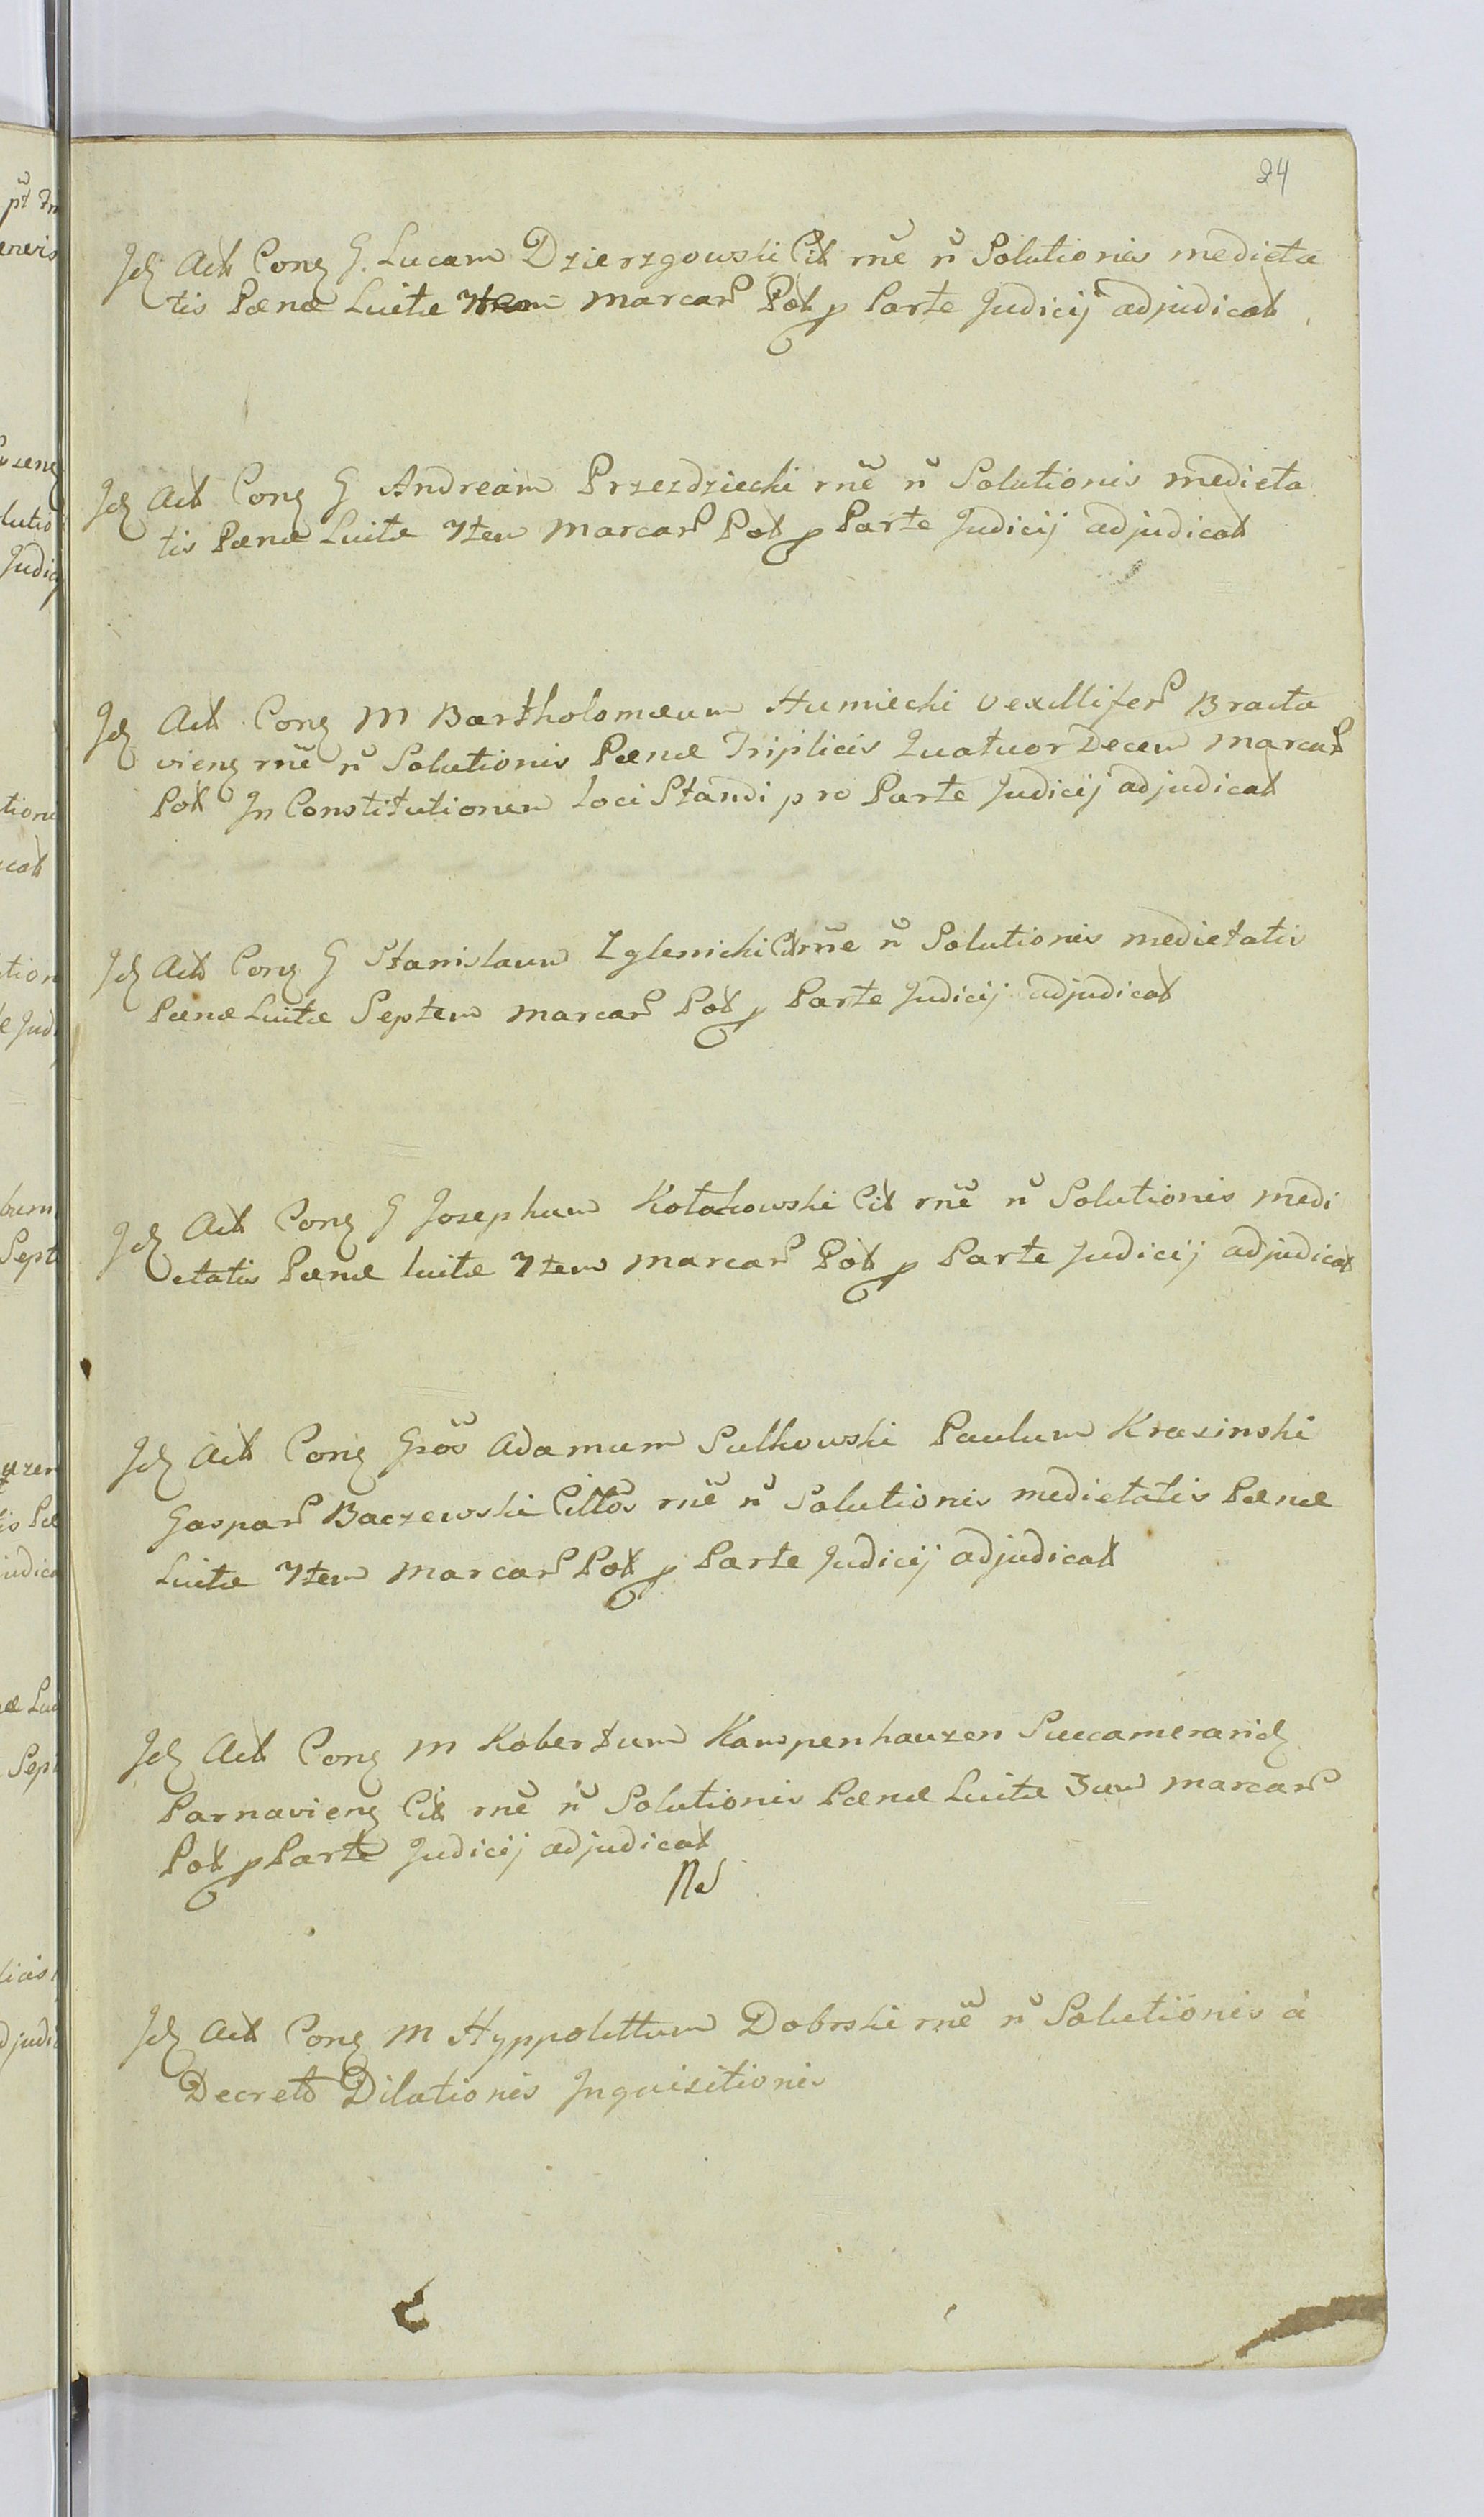 24
Jdz Act Conz G. Lucam Dzierzgowski Cit rne n Solutionis medieta
tis Pænæ Luitæ 7tem marcar Pol p Parte Judicij adjudicat
Jdz Act Conz G Andream Przezdziecki rne n Solutionis medieta
tis Pænæ Luitæ 7tem marcar Pol p Parte Judicij adjudicat
Jdz Act Conz M Bartholomæum Humiecki Vexillifer Bracla
vienz rne n Solutionis Pænæ Triplicis Quatuor Decem marcar
Pol In Constitutionem loci Standi pro Parte Judicij adjudicat
Jdz Act Conz G Stanislaum Zglenicki Cit rne n Solutionis medietatis
Pænæ Luitæ Septem marcar Pol p Parte Judicij adjudicat
Jdz Act Conz G Josephum Kotakowski Cit rne n Solutionis medi
etatis Pænæ luitæ 7tem marcar Pol p Parte Judicij adjudicat
Jdz Act Conz Gsos Adamum Sulkowski Paulum Krasinski
Gaspar Baczewski Cittos rne n Solutionis medietatis Pænæ
Luitæ 7tem marcar Pol p Parte Judicij adjudicat
Jdz Act Conz M Robertum Kampenhauzen Succameraridz
Parnavienz Cit rne n Solutionis Pænæ Luitæ 3um marcar
Pol p Parte Judicij adjudicat
Jdz Act Conz M Hyppolittum Dobrski rne n Solutionis à
Decreto Dilationis Inquisitionis